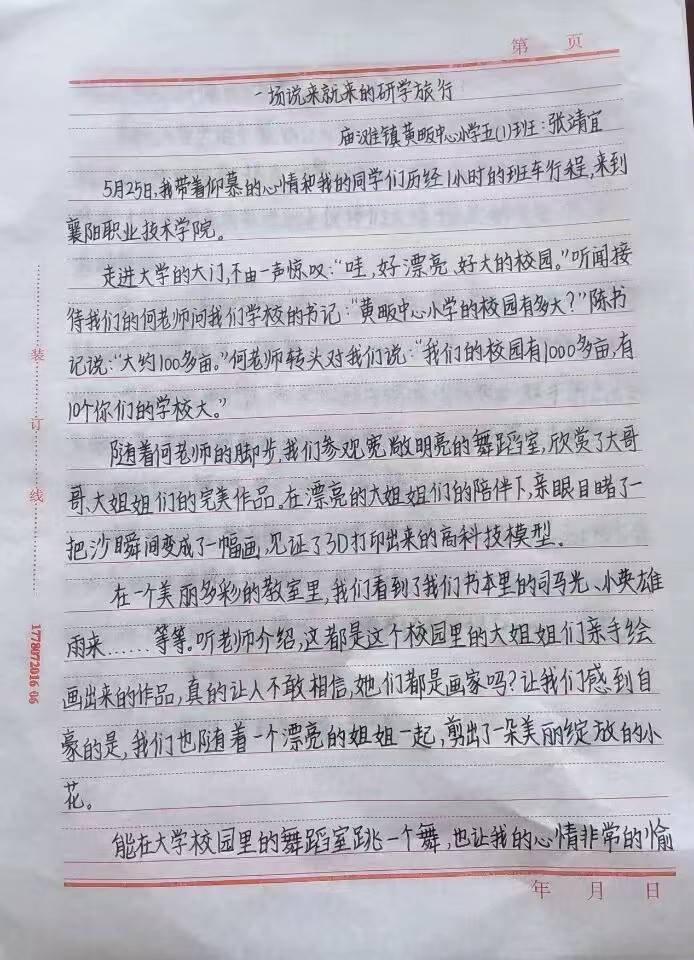 第 页
一场说来就来的研学旅行
庙滩镇黄畈中心小学五(1)班：张靖宜
5月25日,我带着仰慕的心情和我的同学们历经1小时的班车行程,来到
襄阳职业技术学院。
走进大学的大门,不由一声惊叹:“哇,好漂亮、好大的校园。”听闻接
待我们的何老师问我们学校的书记:“黄畈中心小学的校园有多大?”陈书
记说:“大约100多亩。”何老师转头对我们说:“我们的校园有1000多亩,有
10个你们的学校大。”
随着何老师的脚步,我们参观宽敞明亮的舞蹈室,欣赏了大哥
哥、大姐姐们的完美作品。在漂亮的大姐姐们的陪伴下,亲眼目睹了一
把沙瞬间变成了一幅画,见证了3D打印出来的高科技模型。
在一个美丽多彩的教室里,我们看到了我们书本里的司马光、小英雄
雨来……等等。听老师介绍,这都是这个校园里的大姐姐们亲手绘
画出来的作品,真的让人不敢相信,她们都是画家吗?让我们感到自
豪的是,我们也随着一个漂亮的姐姐一起,剪出了一朵美丽绽放的小
花。
能在大学校园里的舞蹈室跳一个舞,也让我的心情非常的愉
年 月 日
装 订 线
1778072016 06